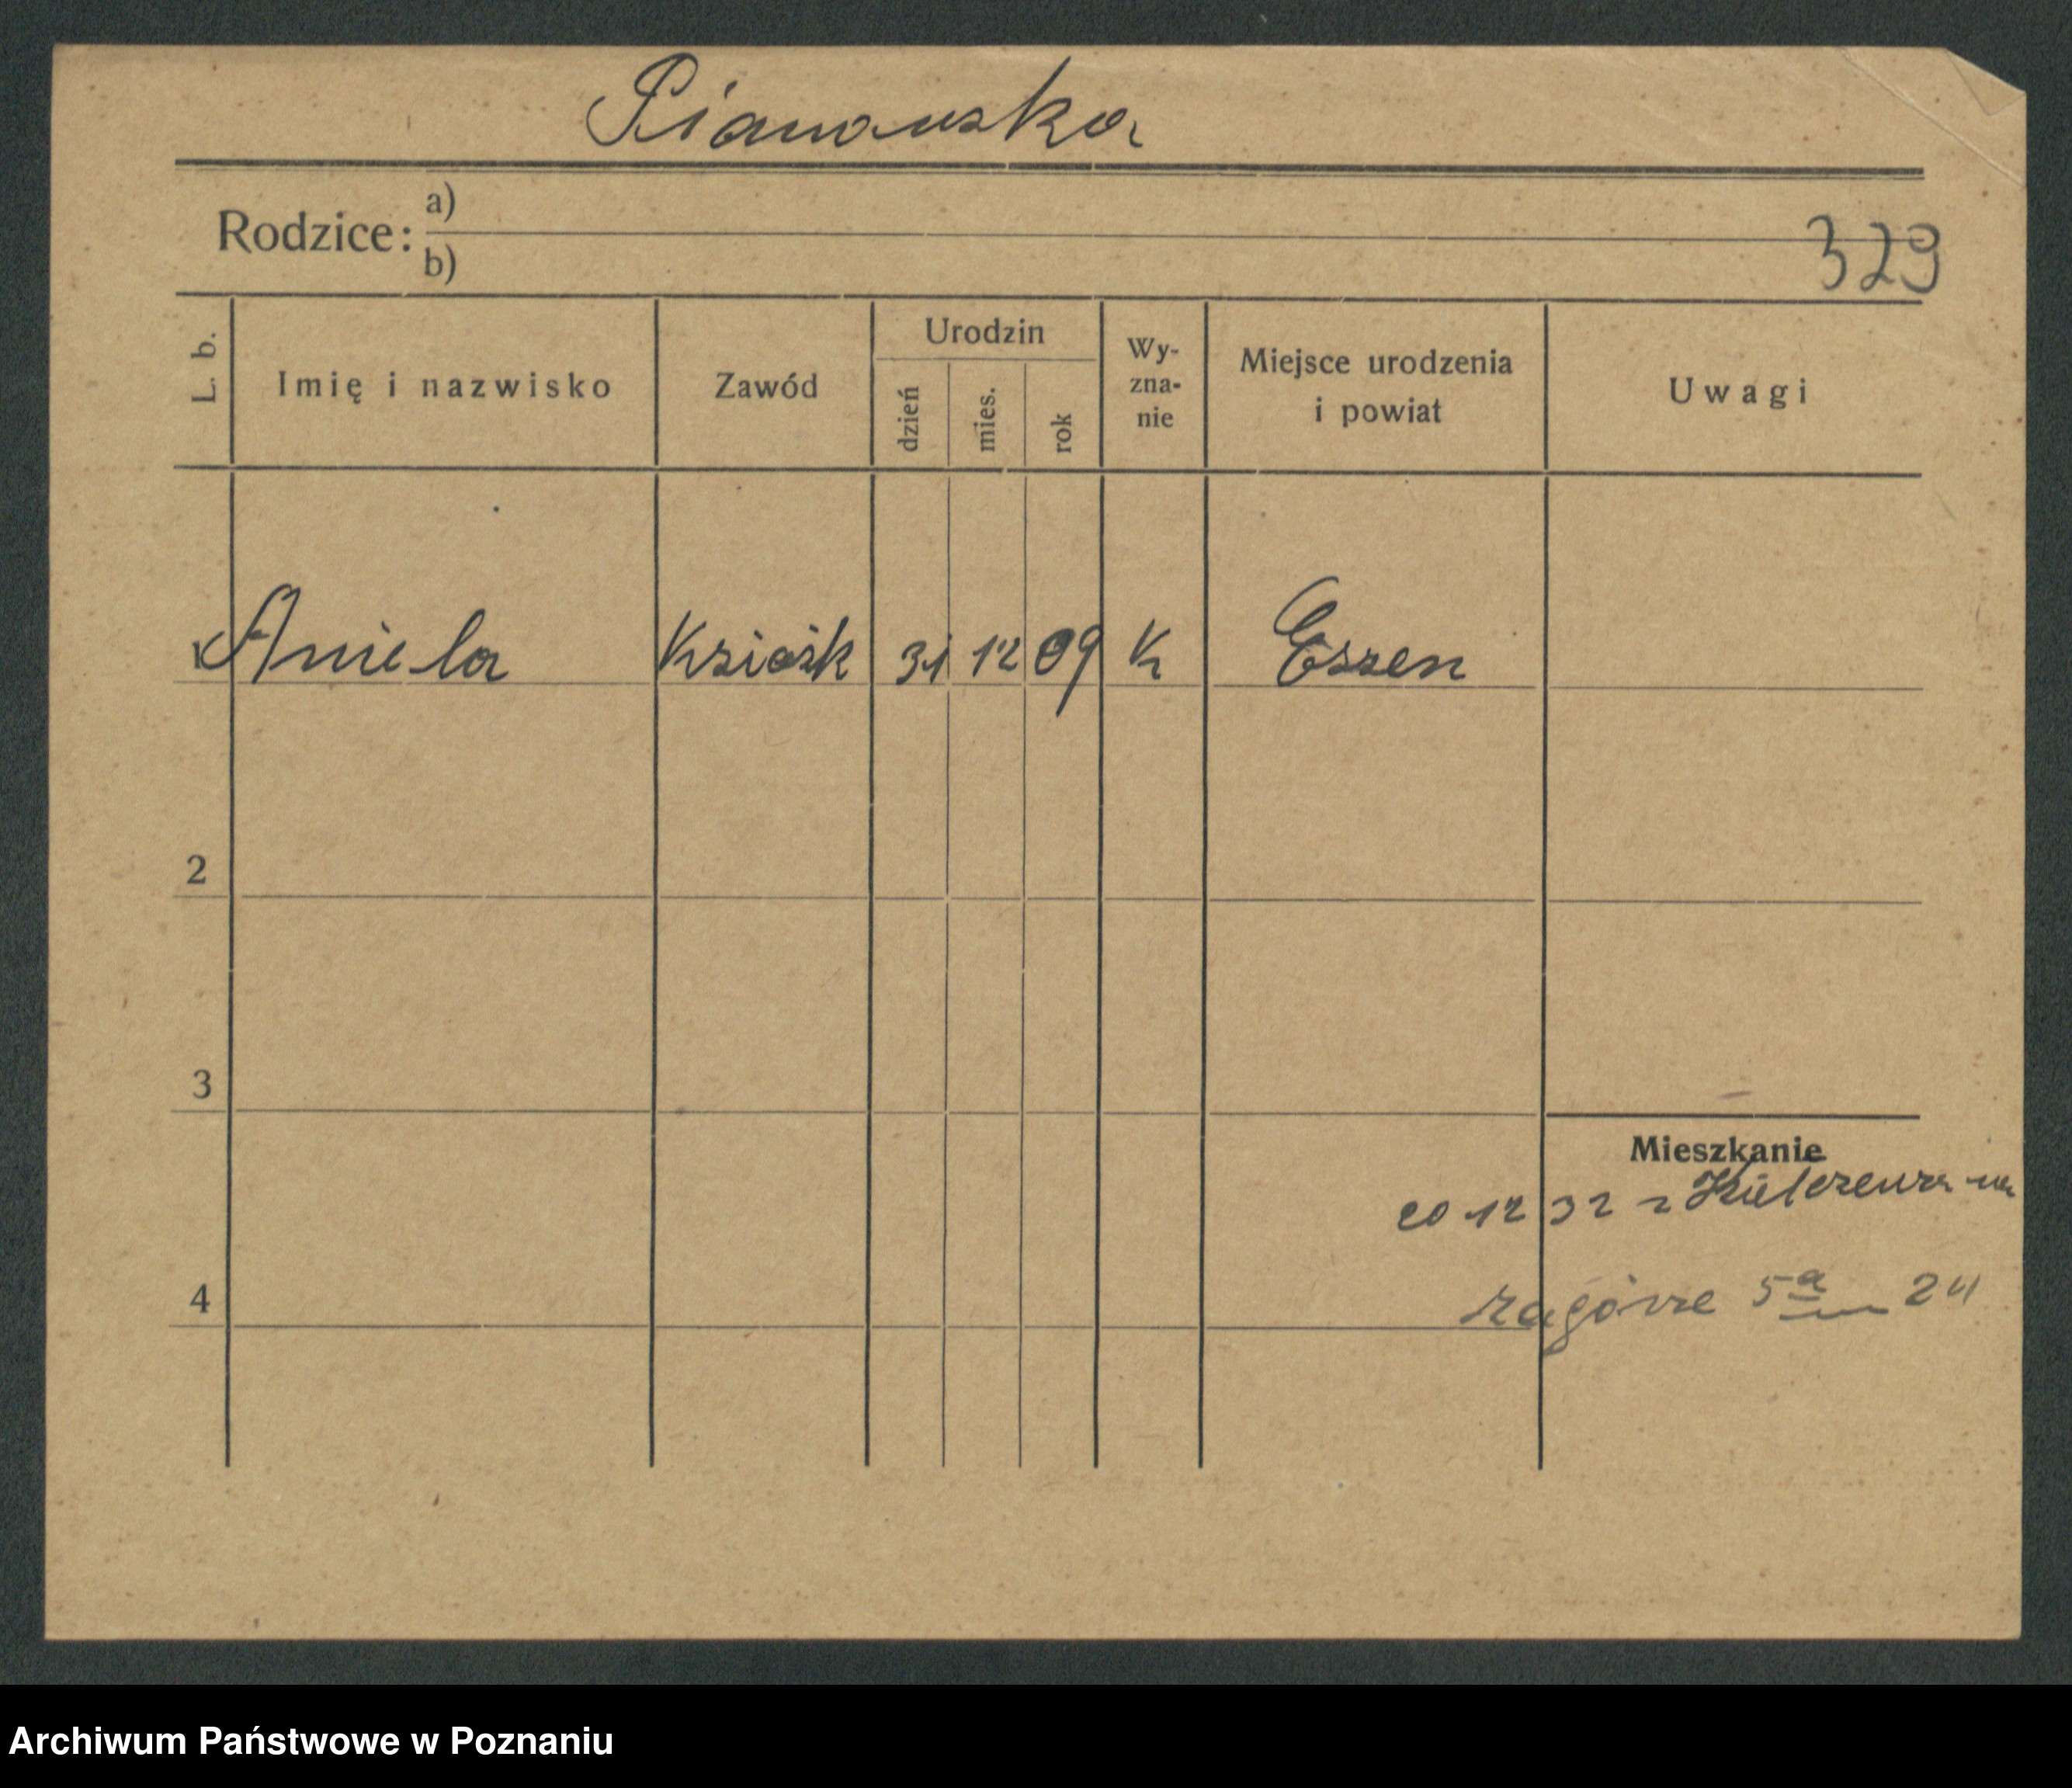 Pianowska
Rodzice:
a)
b)
329
L. b.
Imię i nazwisko
Zawód
Urodzin
dzień
mies.
rok
Wy-
zna-
nie
Miejsce urodzenia
i powiat
Uwagi
1 Aniela Ksiożk 31 12 09 K Essen
2
3
4
Mieszkanie
20 12 32 z na
Zagórze 5a 24
Archiwum Państwowe w Poznaniu